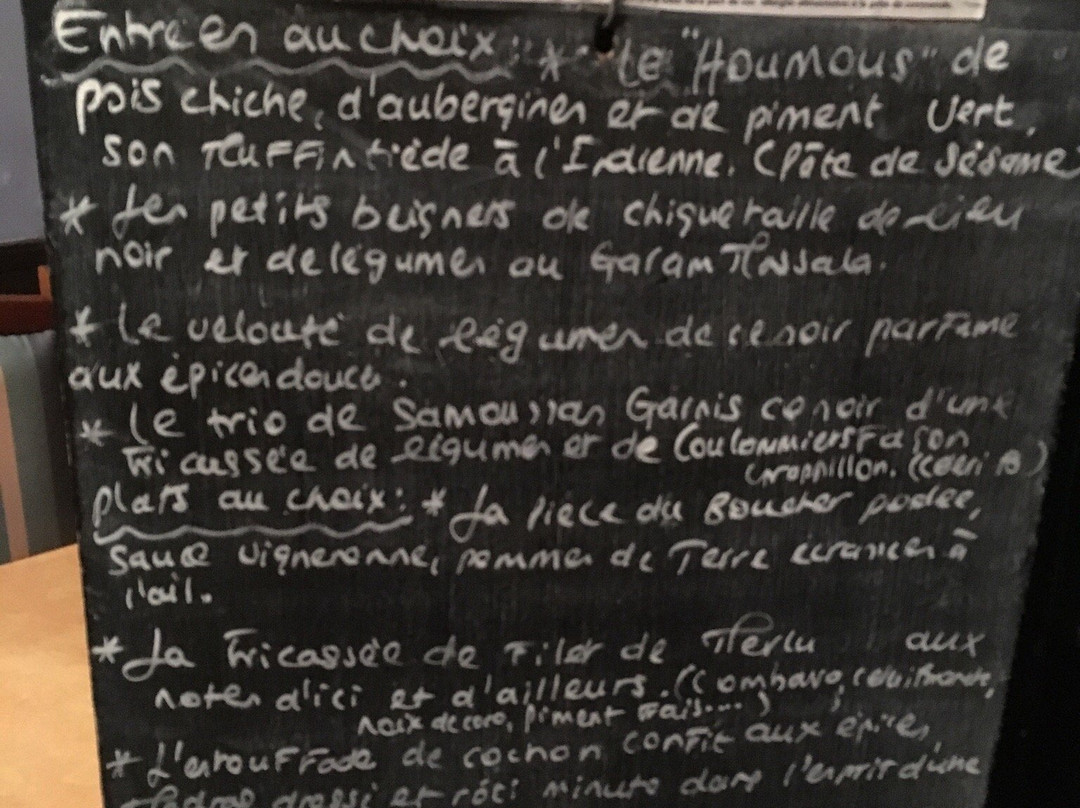 Entrées au choix : * Le "Houmous" de
pois chiche, d'aubergines et de piment vert,
son muffin tiède à l'Indienne. (Pâte de Sésame
* Les petits beignets de chiquetaille de lieu
noir et de légumes au Garam Massala.
* Le velouté de légumes de ce soir parfumé
aux épices douces.
* Le trio de Samoussas Garnis ce soir d'une
fricassée de légumes et de Coulommiers façon
croppillon.
plats au choix : * La pièce du Boucher poêlée,
sauce vigneronne, pommes de Terre écrasées à
l'ail.
* La fricassée de Filet de Merlu aux
notes d'ici et d'ailleurs. (Combava,
noix de coco, piment frais...)
* L'estouffade de cochon confit aux épices,
dressé et rôti minute dans l'esprit d'une